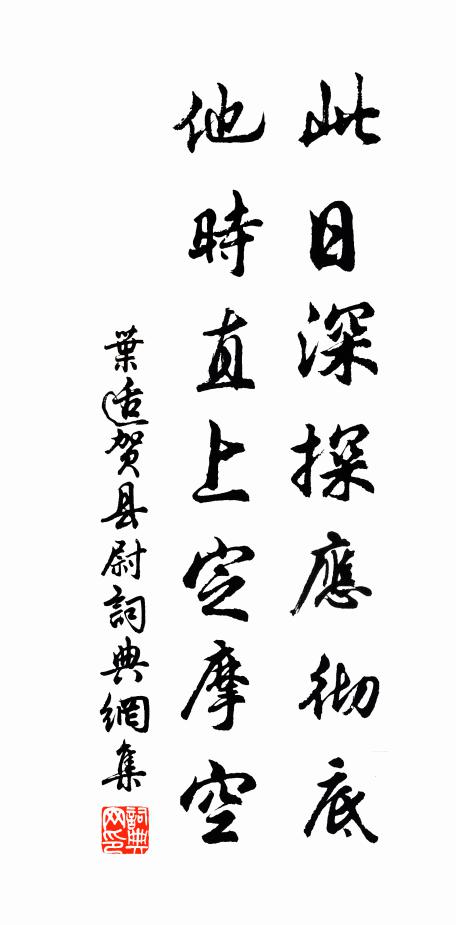 此日深探應彻底
他時直上定摩空
葉适賀县尉詞典網集
詞典网印